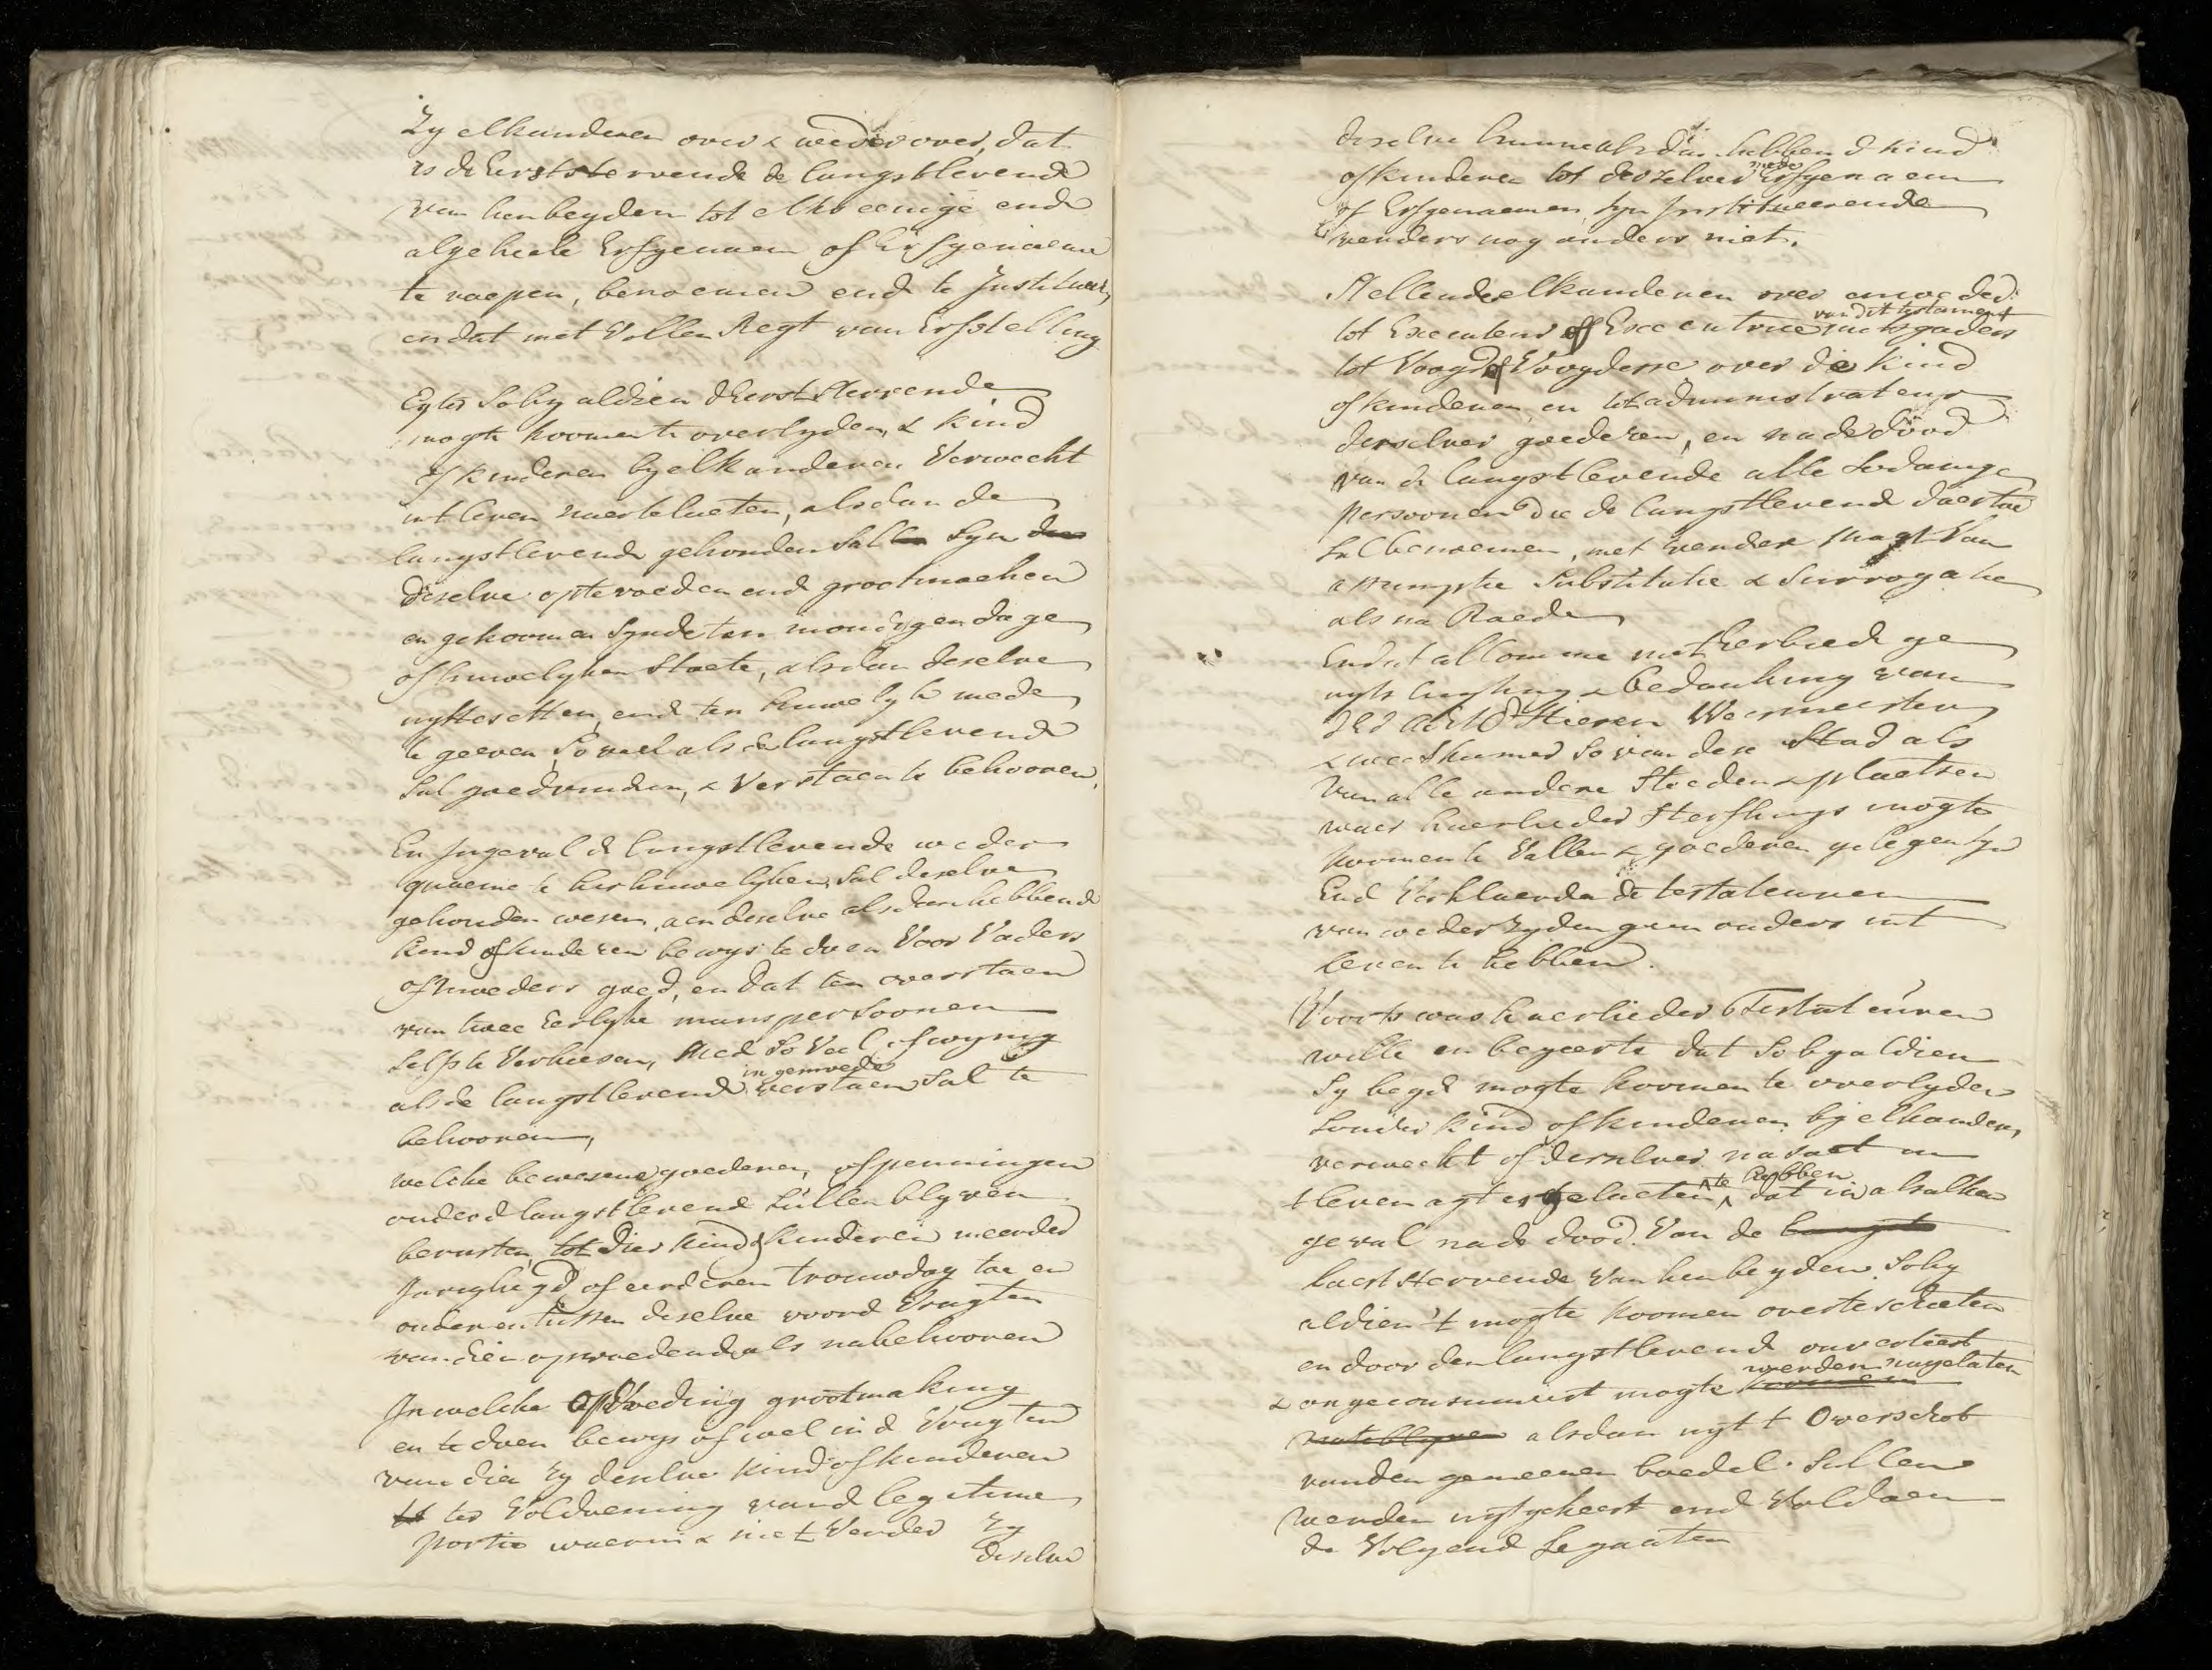 Zy elkanderen over & weder over, dat
is de Eerststervende de langstlevende
van hen beyden tot elks eenige ende
algeheele Erfgenaem of Erfgenaeme
te roepen, benoemen ende te Instituer,
en dat met Vollen Regt van Erfstelling
Egter so by aldien d'Eerst stervende
mogte koomen te overlyden, & kind
of kinderen by elkanderen Verweckt
int leven naer te laeten, alsdan de
langstlevende gehouden sal syn
deselve op te voeden ende groot maeken
en gekoomen synde ten mondigen dage
of huwelyken Staete, alsdan deselve
uytte setten, ende ten huwelyk mede
te geeven, so veel als de langstlevende
sal goedvinden, & Verstaen te behooren,
En Ingeval de langstlevende weder
quaeme te herhuwelyken, sal deselve
gehouden wesen, aen deselve alsdan hebbende
kind of kinderen bewys te doen Voor Vaders
of moeders goed, en dat ten overstaen
van twee Eerlyke manspersoonen
selfs te Verkiesen, met so Veel of wynig
als de langstlevende in gemoede verstaen sal te
behooren,
welcke bewesene goederen, of penningen
onder d langstlevende sullen blyven
berusten, tot dier kind of kinderen meerder
Jarigheyd of eerderen trouwdag toe en
onder en tussen deselve woord Vrugten
van dien opvoedende als na behooren
In welcke opvoeding grootmaking
en te doen bewys of wel in d Vrugten
van dien zy deselve kind of kinderen
ter Voldoening vand legitime
portie waerin & niet Verder Zy
deselve
deselve hunne alsdan hebbend kind
of kinderen tot derselver mede Erfgenaem
of Erfgenaemen syn Institueerende
& verders nog anders niet.
Stellende elkanderen over en weder
tot Executeur of Executrice van dit testament mitsgaders
tot Voogd of Voogdesse over die kind
of kinderen, en tot administrateur
derselver goederen, en na de dood
van de langstlevende alle sodanige
persoonen die de langstlevend daertoe
sal benoemen, met verdere magt Van
assumptie Substitutie & Surrogatie
als na Raede
Ende dat alomme met Eerbiedige
uytsluyting & bedanking van
de Heeren Weesmeesteren
& weeskamer so van dese Stad als
Van alle andere Steeden & plaetsen
waer haerlieder Sterfhuys mogte
koomen te Vallen & goederen gelegen syn
End Verklaerden de testateuren
van weder zyden geen ouders int
leven te hebben.
Voorts was haerlieder Testateuren
wille en begeerte dat so by aldien
Sy beyde mogte koomen te overlyden
sonder kind of kinderen by elkanderen
verweckt of derselver nasaet in
t leven agter gelaeten te hebben dat in alsulken
geval na de dood Van de
laest stervende Van hen beyden so by
aldien 't mogte koomen over te schieten
en door den langstlevend onverteert
& ongeconsumeert mogte werden nagelaten
alsdan uyt t Overschot
van den gemeenen boedel sullen
werden uytgekeert end Voldaen
de Volgend Legaaten